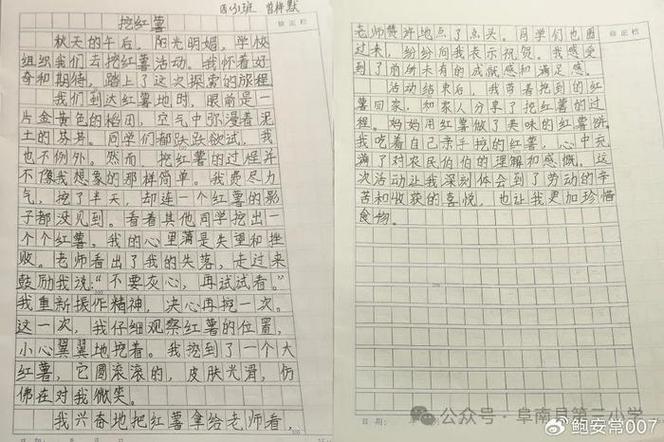 四(3)班
挖红薯
秋天的午后,阳光明媚。学校
组织我们去挖红薯活动。我怀着好
奇和期待,踏上了这次探索的旅程
我们到达红薯地时,眼前是一
片金黄色的稻田,空气中弥漫着泥
土的芬芳。同学们都跃跃欲试,我
也不例外。然而,挖红薯的过程并
不像我想象的那样简单。我费尽力
气,挖了半天,却连一个红薯的影
子都没见到。看着其他同学挖出一
个个红薯。我的心里满是失望和挫
败。老师看出了我的失落,走过来
鼓励我说:“不要灰心,再试试看。”
我重新振作精神,决心再挖一次。
这一次,我仔细观察红薯的位置,
小心翼翼地挖着。我挖到了一个大
红薯,它圆滚滚的,皮肤光滑,仿
佛在对我微笑。
我兴奋地把红薯拿给老师看,
老师赞许地点了点头。同学们也围
过来,纷纷向我表示祝贺。我感受
到了前所未有的成就感和满足感。
活动结束后,我带着挖到的红
薯回家,和家人分享了挖红薯的过
程。妈妈用红薯做了美味的红薯饼。
我吃着自己亲手挖的红薯,心中充
满了对农民伯伯的理解和感慨。这
次活动让我深刻体会到了劳动的辛
苦和收获的喜悦,也让我更加珍惜
食物。
公众号·阜南县第三小学
@鲍安常007